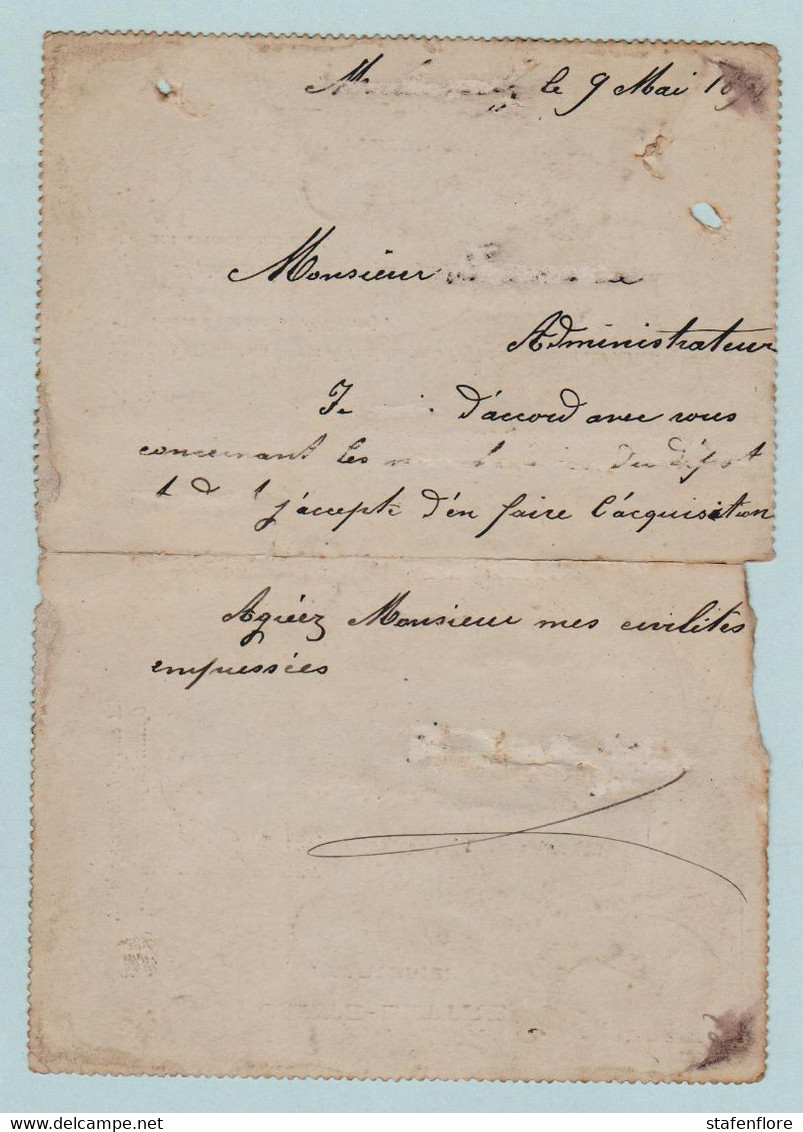 le 9 Mai 18
Monsieur
Administrateur
Je d'accord avec vous
concernant les du dépot
j'accepte d'en faire l'acquisition
Agréez Monsieur mes civilités
empressées
stafenflore